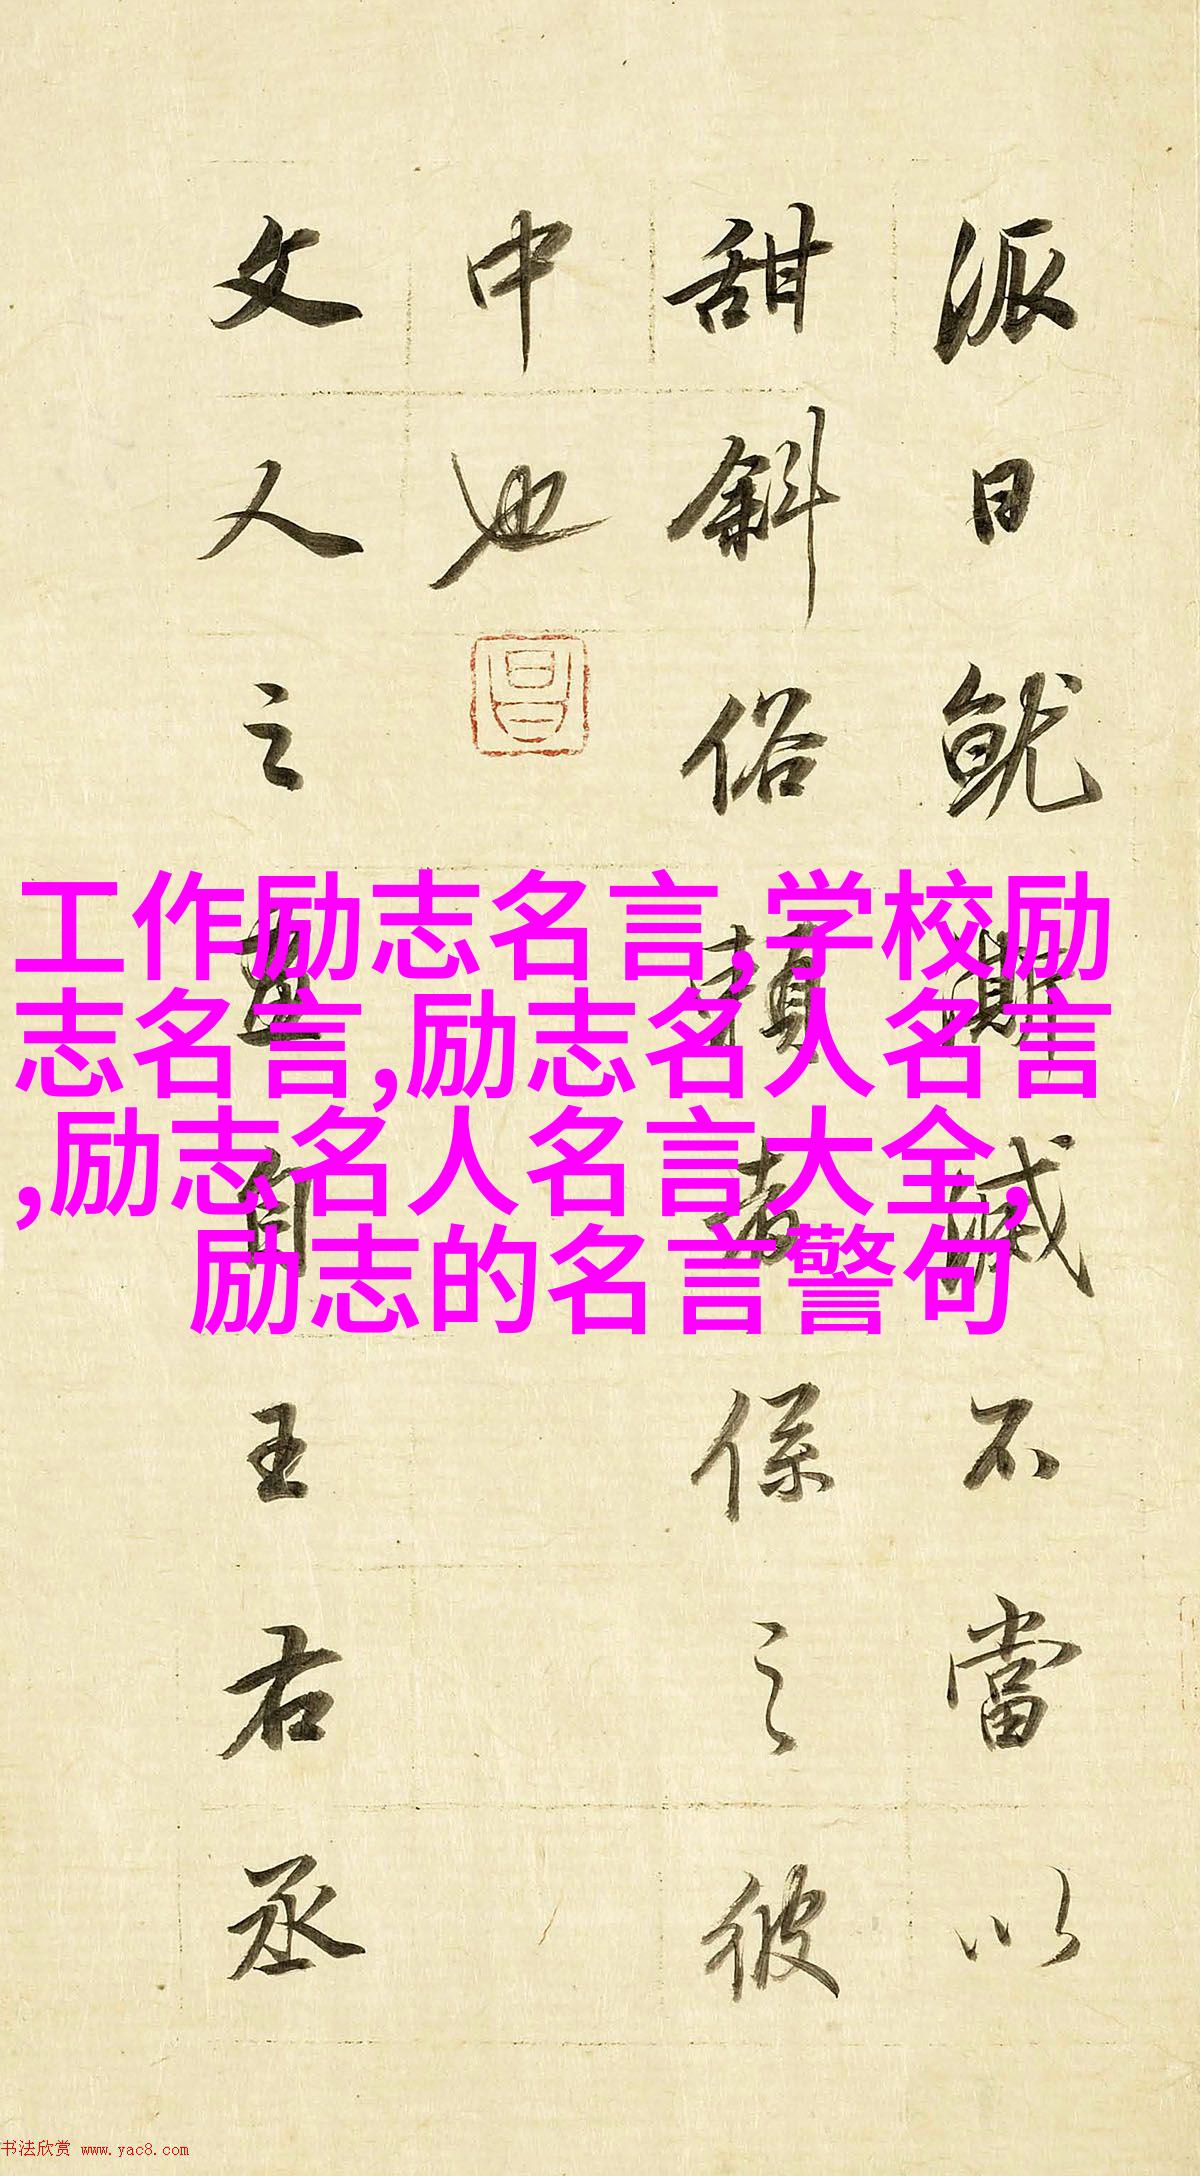 派日就澌滅不當以
甜斜俗賴者係之彼
中也
昌
文人之畫自王右丞
工作励志名言,学校励
志名言,励志名人名言
,励志名人名言大全,
励志的名言警句
书法欣赏 www.yac8.com